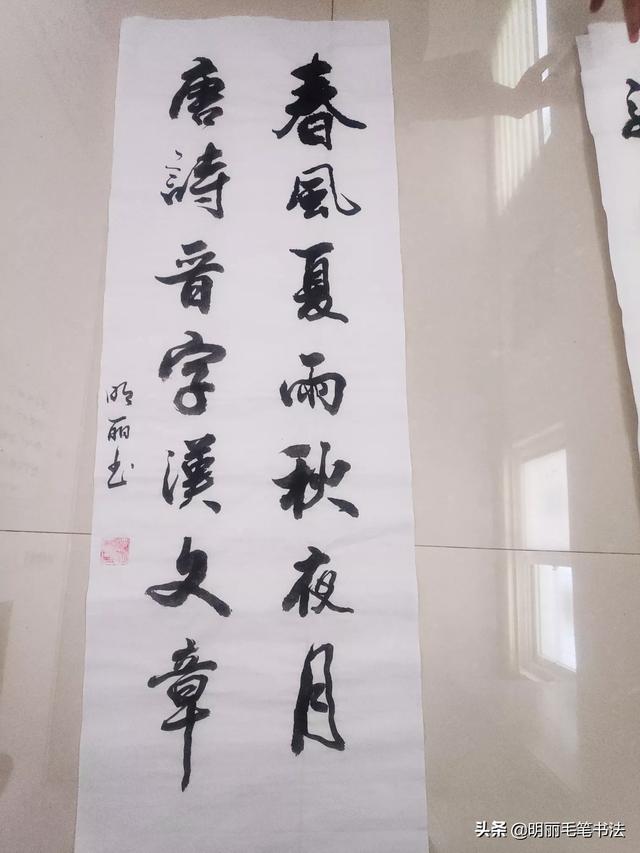 春風夏雨秋夜月
唐詩晋字漢文章
明丽书
头条 @明丽毛笔书法